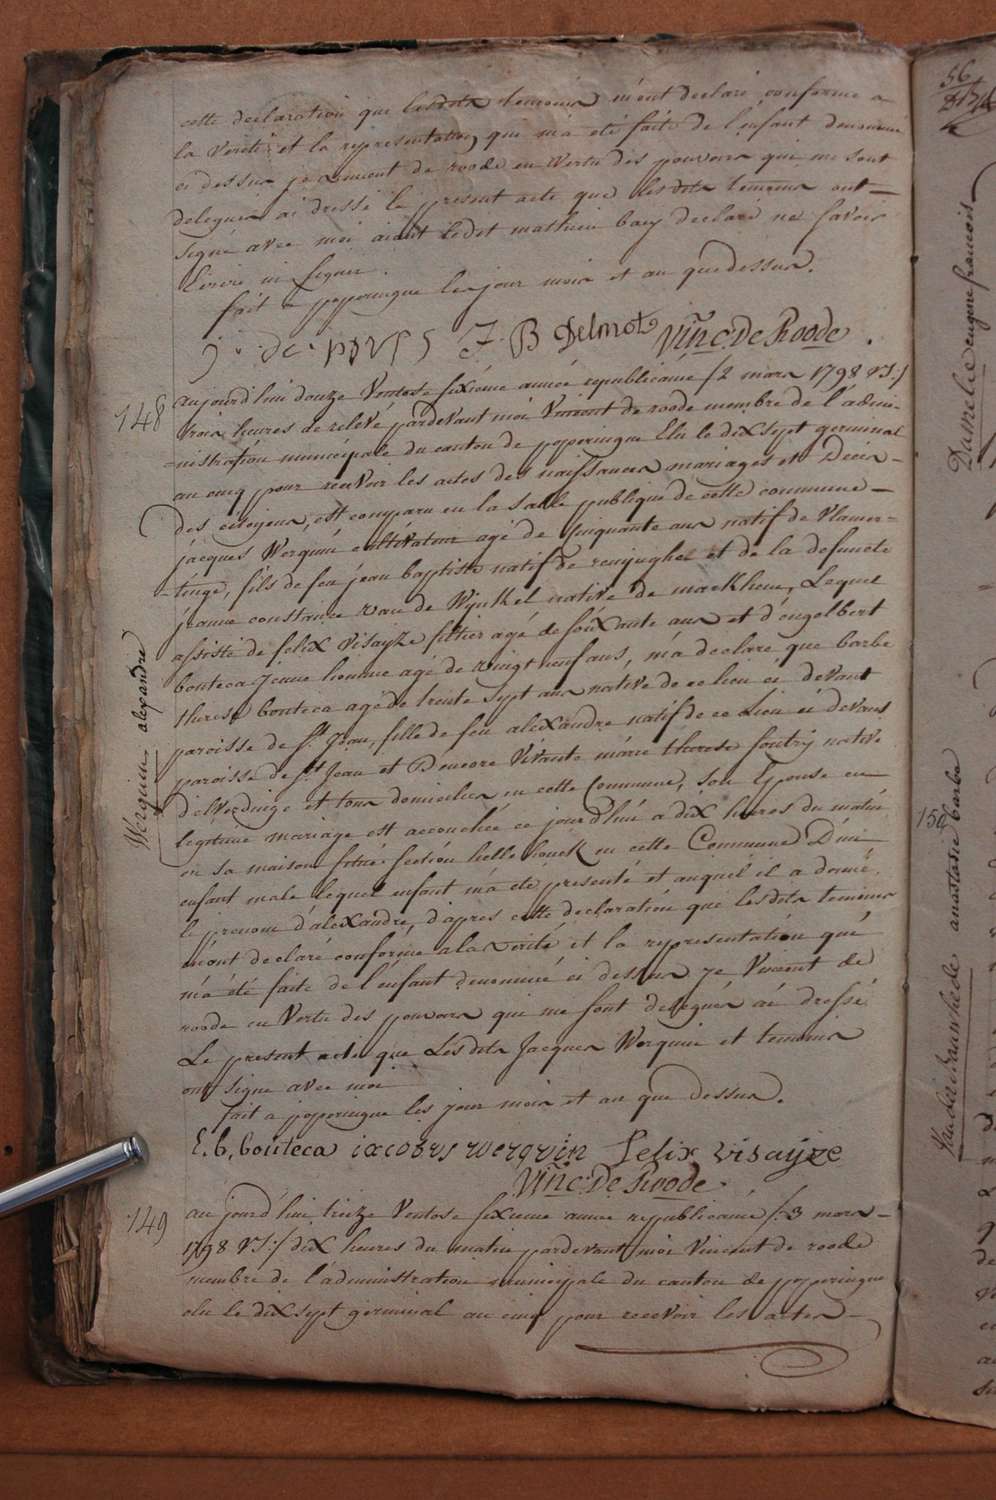 cette declaration que lesdits temoins m'ont declaré conforme a
la verité et la representation, que m'a été faite de l'enfant denommé
ci dessus je vincent de roode en vertu des pouvoirs qui me sont
delegués ai dressé le present acte que lesdits temoins ont
signé avec moi aiant ledit mathieu baey declaré ne savoir
Ecrire ni signer.
fait a poperingue les jour mois et an que dessus.
J. B Delmotz Vinc: De Roode.
148
aujourd'hui douze Ventose sixiéme année republicaine /2 mars 1798 VS:/
trois heures de relevé pardevant moi Vincent de roode membre de l'admi-
=nistration municipale du canton de poperingue Elu le dix sept germinal
an cinq pour recevoir les actes des naissances mariages et Décès-
des citoyens, est comparu en la salle publique de cette commune-
jacques Werquin cultivateur agé de Cinquante ans natif de Vlamer=
=tinge, fils de feu jean baptiste natif de reninghel et de la defuncte
jeanne constance van de Wijnkel native de merkhem, Lequel
assisté de felix Visayze fittier agé de soixante ans et d'engelbert
bouteca jeune homme agé de vingt neuf ans, m'a declaré que barbe
therese bouteca agé de trente sept ans native de ce lieu ci devant
paroisse de St. Jean, fille de feu alexandre natif de ce Lieu ci devant
paroisse de St Jean et Encore Vivante marie therese soutry native
d'elverdinge et tous domicilies en cette Commune, son Epouse en
legitime mariage est accouchée ce jourd'hui a dix heures du matin
en sa maison située section helle houck en cette Commune D'un
enfant male lequel enfant m'a été presenté et auquel il a donné
le prenom d'alexandre, d'apres cette declaration que lesdits temoins
m'ont declaré conforme a la verité et la representation qui
m'a été faite de l'enfant denommé ci dessus je Vincent de
roode en Vertu des pouvoirs qui me sont delegués ai dressé
Le present acte que Lesdits Jacques Werquin et temoins
ont signe avec moi
fait a poperingue les jour mois et an que dessus.
E. b. bouteca iacobus werqvin felix visayze
Vinc: De Roode.
Werquin alexandre
149
aujourd'hui treize Ventose sixieme annee republicaine /3 mars-
1798 VS:/ dix heures du matin pardevant moi Vincent de roode
membre de l'administration municipale du canton de poperingue
elu le dix sept germinal an cinq pour recevoir les actes-
56
Dumelie eugene francois
150
Vanderhaeghe anastasie barbe